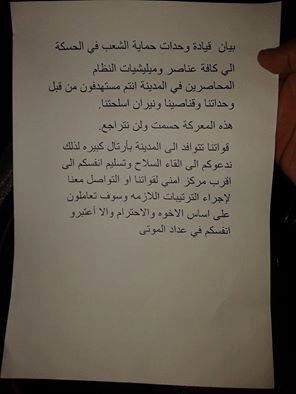 بيان قيادة وحدات حماية الشعب في الحسكة
الي كافة عناصر وميليشيات النظام
المحاصرين في المدينة انتم مستهدفون من قبل
وحداتنا وقناصينا ونيران اسلحتنا.
هذه المعركة حسمت ولن نتراجع.
قواتنا تتوافد الى المدينة بأرتال كبيره لذلك
ندعوكم الى القاء السلاح وتسليم انفسكم الى
اقرب مركز امني لقواتنا او التواصل معنا
لإجراء الترتيبات اللازمه وسوف تعاملون
على اساس الاخوه والاحترام والا أعتبرو
انفسكم في عداد الموتى